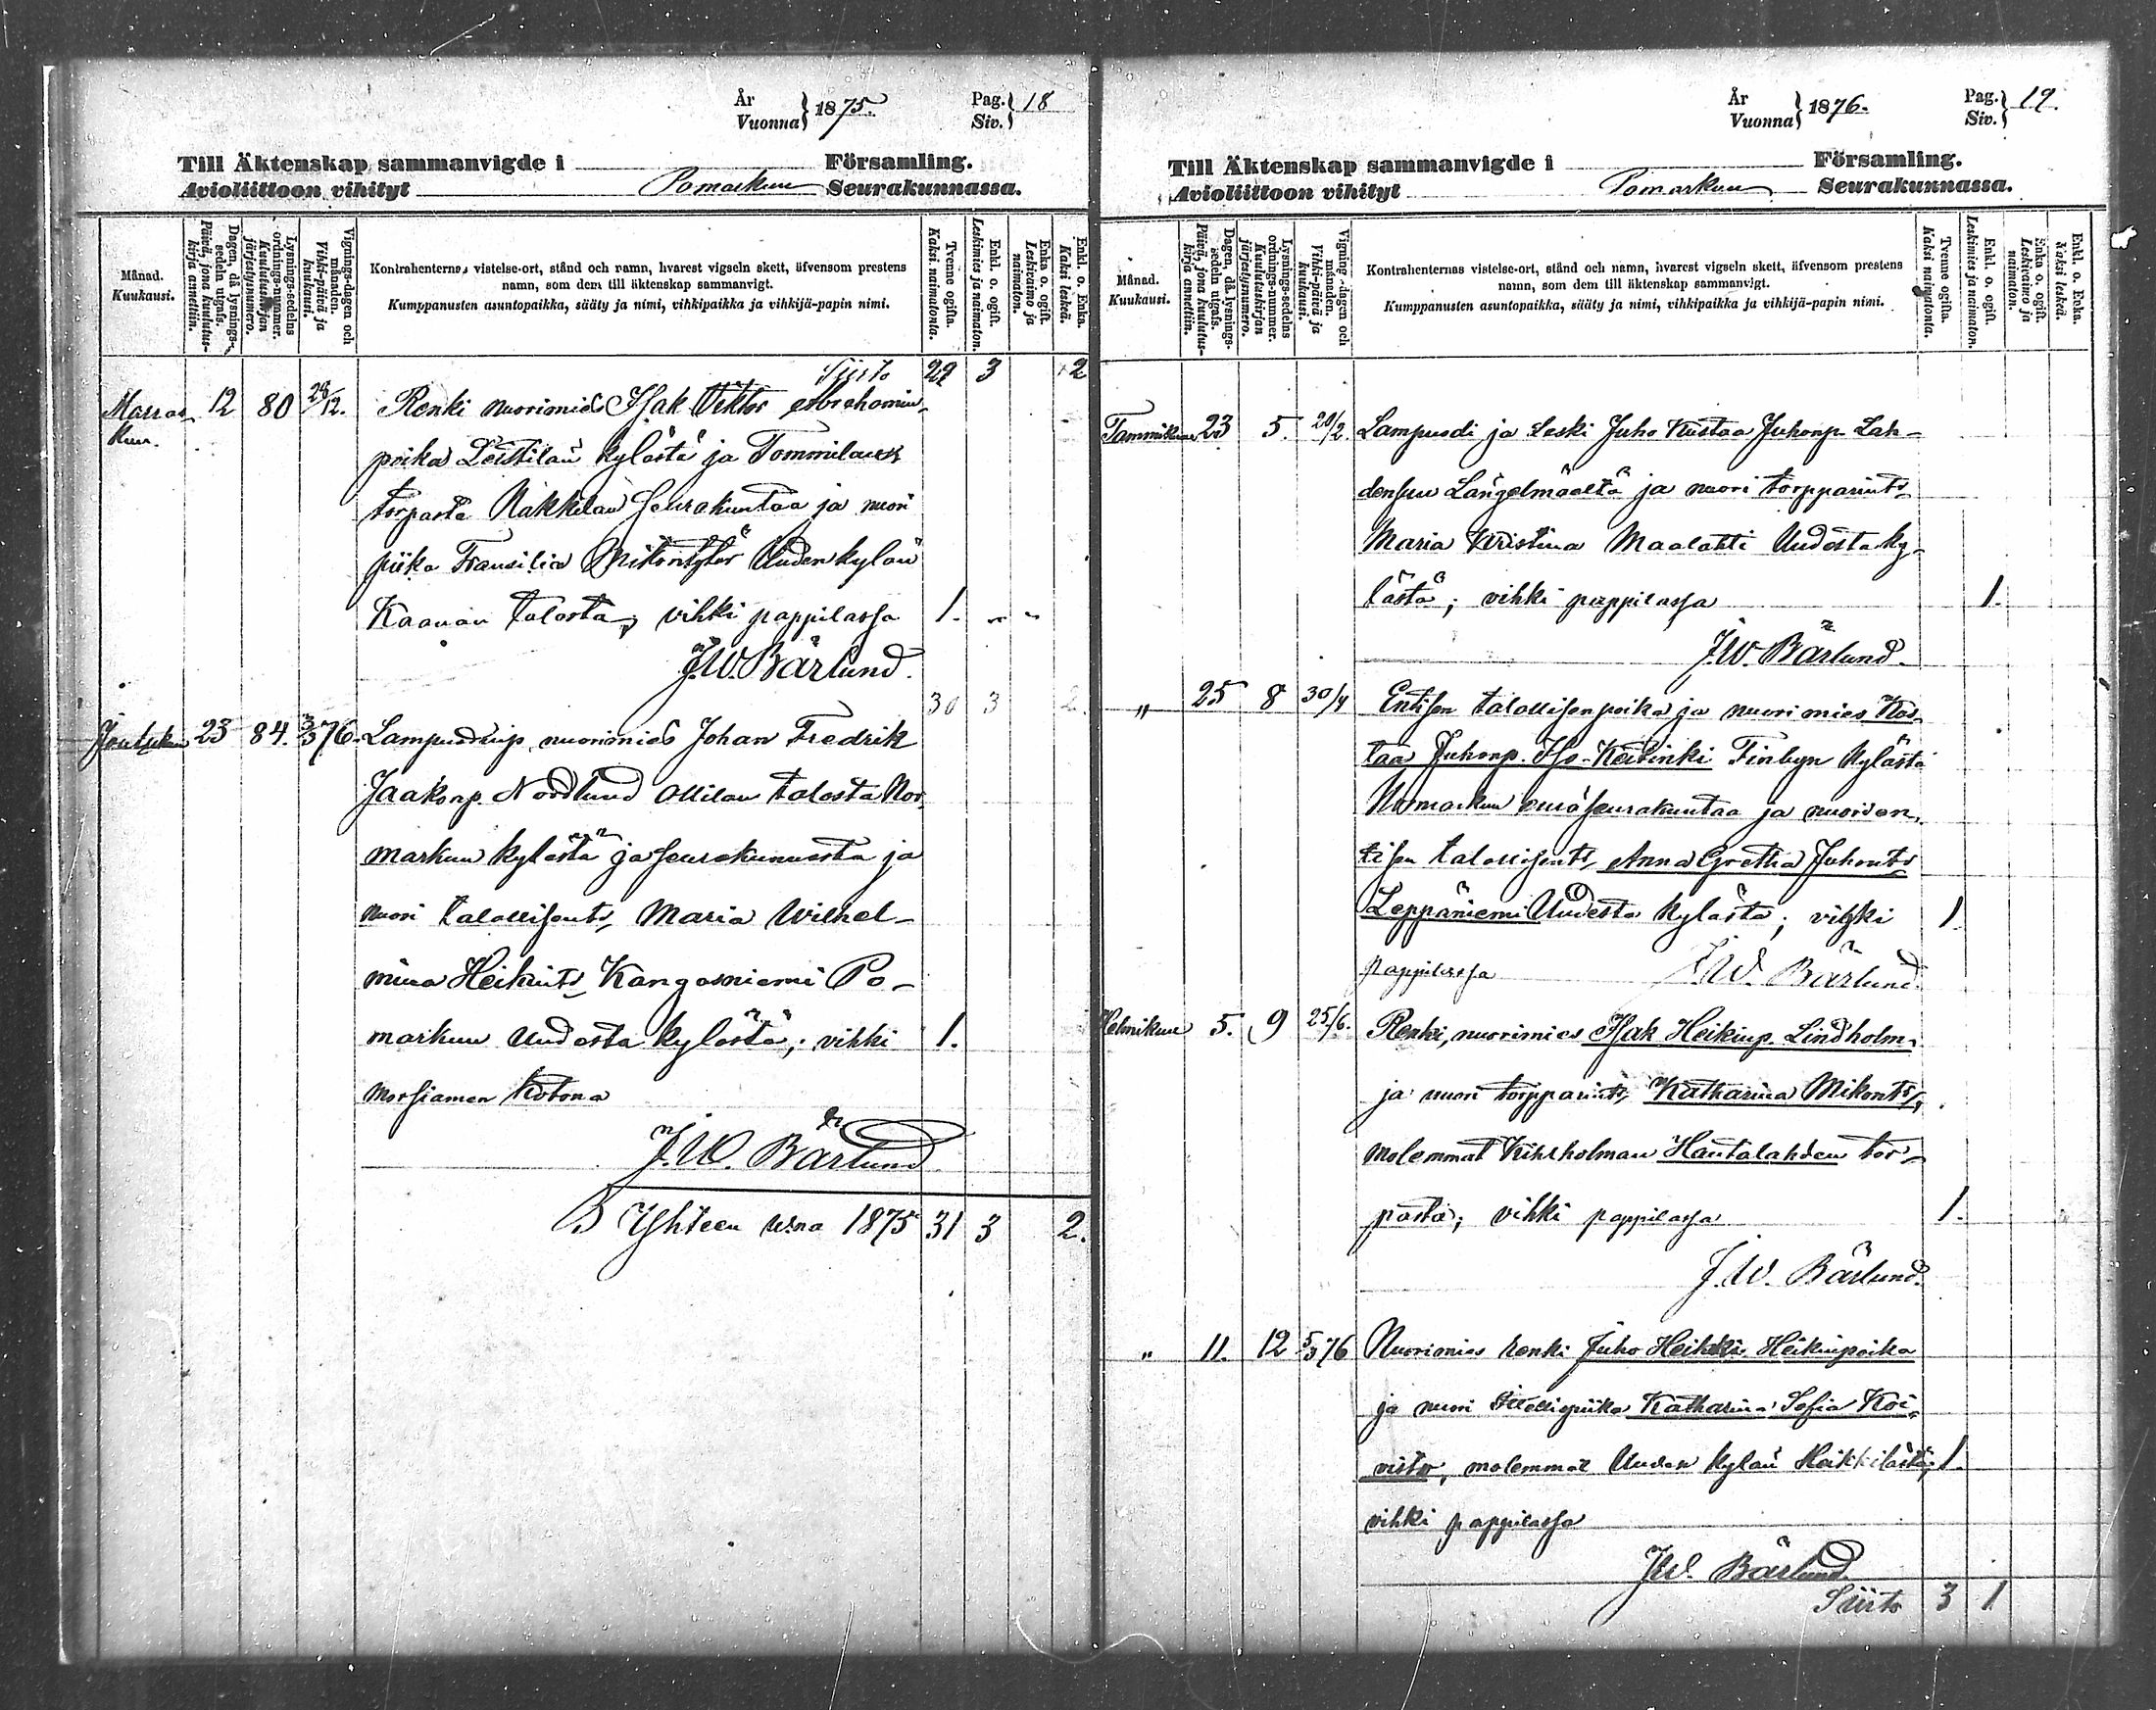 År
Vuonna } 1875. Pag. Siv. } 18
Till Äktenskap sammanvigde i Församling.
Avioliittoon vihityt Pomarkun Seurakunnassa.
Månad. Kuukausi.
Dagen, då lysnings-sedeln utgafs. Päivä, jona kuulutus-kirja annettiin.
Lysnings-sedelns ordnings-nummer. Kuulutuskirjan järjestysnumero.
Vignings-dagen och månaden. Vihki-päivä ja kuukausi.
Kontrahenternas vistelse-ort, stånd och namn, hvarest vigseln skett, äfvensom prestens
namn, som dem till äktenskap sammanvigt.
Kumppanusten asuntopaikka, sääty ja nimi, vihkipaikka ja vihkijä-papin nimi.
Tvenne ogifta. Kaksi naimatonta.
Enkl. o. ogift. Leskimies ja naimaton.
Enka o. ogift. Leskivaimo ja naimaton.
Enkl. o. Enka. Kaksi leskeä.
Siirto 29 3 2
Marras- 12 80 28/12. Renki nuorimies Isak Viktor Abrahamin-
kuu. poika Leistilän kylästä ja Tommilan
torpasta Nakkilan seurakuntaa ja nuori
piika Fransilia Mikontytär Uudenkylän
Kaanan talosta, vihki pappilassa 1. " "
J.W. Bärlund.
30 3 2.
Joulukuu 23 84. 3/3 76. Lampuodinp. nuorimies Johan Fredrik
Jaakonp. Nordlund Ollilan talosta Nor-
markun kylästä ja seurakunnasta ja
nuori talollisent. Maria Wilhel-
mina Heikints. Kangasniemi Po-
markun Uudesta kylästä; vihki 1.
morsiamen kotona
J.W. Bärlund
Yhteen v:na 1875 31 3 2.
År
Vuonna } 1876. Pag. Siv. } 19.
Till Äktenskap sammanvigde i Församling.
Avioliittoon vihityt Pomarkun Seurakunnassa.
Månad. Kuukausi.
Dagen, då lysnings-sedeln utgafs. Päivä, jona kuulutus-kirja annettiin.
Lysnings-sedelns ordnings-nummer. Kuulutuskirjan järjestysnumero.
Vignings-dagen och månaden. Vihki-päivä ja kuukausi.
Kontrahenternas vistelse-ort, stånd och namn, hvarest vigseln skett, äfvensom prestens
namn, som dem till äktenskap sammanvigt.
Kumppanusten asuntopaikka, sääty ja nimi, vihkipaikka ja vihkijä-papin nimi.
Tvenne ogifta. Kaksi naimatonta.
Enkl. o. ogift. Leskimies ja naimaton.
Enka o. ogift. Leskivaimo ja naimaton.
Enkl. o. Enka. Kaksi leskeä.
Tammikuu 23 5. 20/2. Lampuodi ja Leski Juho Kustaa Juhonp. Lah-
densuu Längelmäeltä ja nuori torpparints.
Maria Kristina Maalahti Uudesta ky-
lästä; vihki pappilassa 1.
J.W. Bärlund.
" 25 8 30/4 Entisen talollisen poika ja nuorimies Kus-
taa Juhonp. Iso-Keitinki Finbyn kylästä
Normarkun seurakuntaa ja nuori en-
tisen talollisents. Anna Gretha Juhonts.
Leppäniemi Uudesta kylästä; vihki 1
pappilassa J.W. Bärlund.
Helmikuu 5. 9 25/6. Renki, nuorimies Isak Heikinp. Lindholm
ja nuori torpparints. Katharina Mikonts.,
molemmat Kihlholman Hautalahden tor-
pasta; vihki pappilassa 1.
J.W. Bärlund.
" 11. 12 5/3 76 Nuorimies renki Juho Heikki Heikinpoika
ja nuori piika Katharina Sofia Koi-
visto, molemmat Uuden kylän Heikkilästä; 1.
vihki pappilassa
J.W. Bärlund.
Siirto 3 1